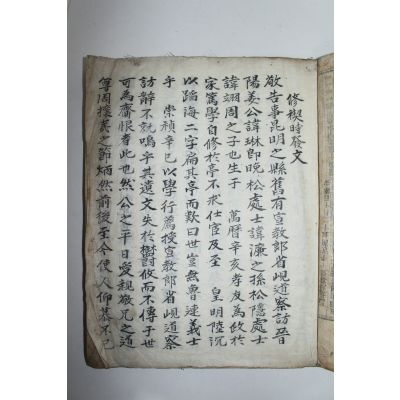 修稧時發文
敬告事昆明之縣舊有宣敎郞省峴道察訪晉
陽姜公諱琳卽晩松處士諱濂之孫松隱處士
諱翊周之子也生于 萬曆辛亥孝友爲政於
家篤學自修於亭不求仕宦及至 皇明陸沉
以蹈海二字扁其亭而歎曰世豈無魯連義士
乎 崇禎辛巳以學行爲授宣敎郞省峴道察
訪辭不就嗚乎其遺文失於鬱攸而不傳于世
可爲齎恨者此也然公之平日愛親敬兄之道
尊周攘夷之節炳然前後至今使人仰慕不已